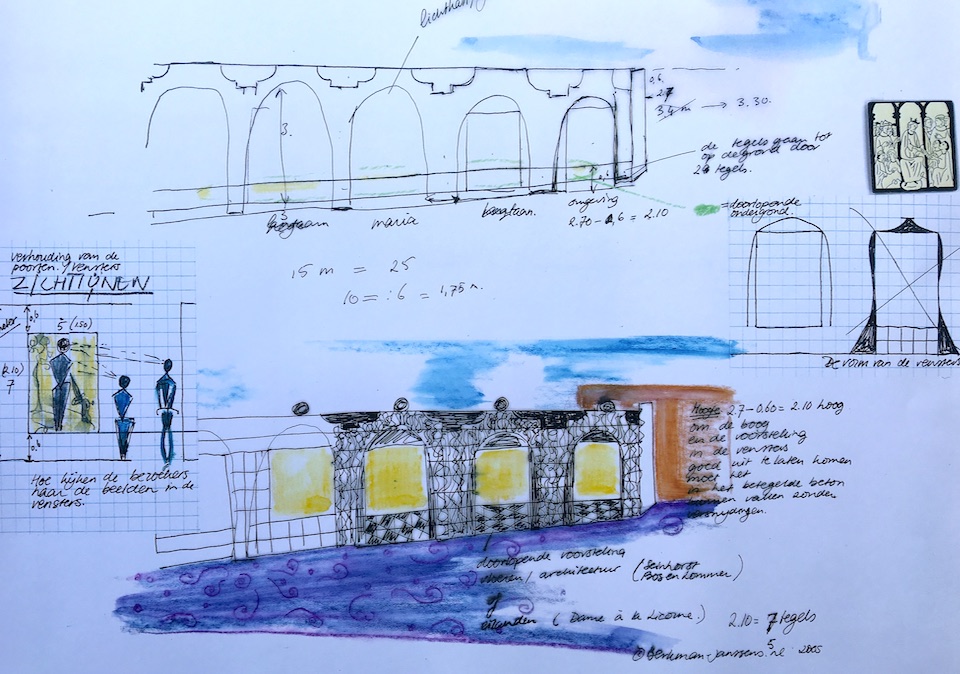 lichtha
0,6
2.7
3,4 m → 3.30.
3.
de tegels gaan tot
op de grond door
tegels.
= doorlopende
ondergrond.
maria
omgeving
2.70 - 0,6 = 2.10
15 m = 25
10 = : 6 = 1,75 m.
verhouding van de
poorten / vensters
ZICHTLIJNEN
0,6
5 (150)
(2.10)
7
0,6
Hoe kijken de bezoekers
naar de beelden in de
vensters.
De vorm van de vensters
Hoogte 2.7 - 0.60 = 2.10 hoog
om de boog
en de voorstelling
in de vensters
goed uit te laten komen
moet het
in het betegelde beton
vallen zonder
doorlopende voorstelling
vloeren / architectuur (Seinhorst
Bos en Lommer)
of
eilanden ( Dame à la Licorne.)
2.10 = 7 tegels
5
©Berkman-Janssens.nl 2005